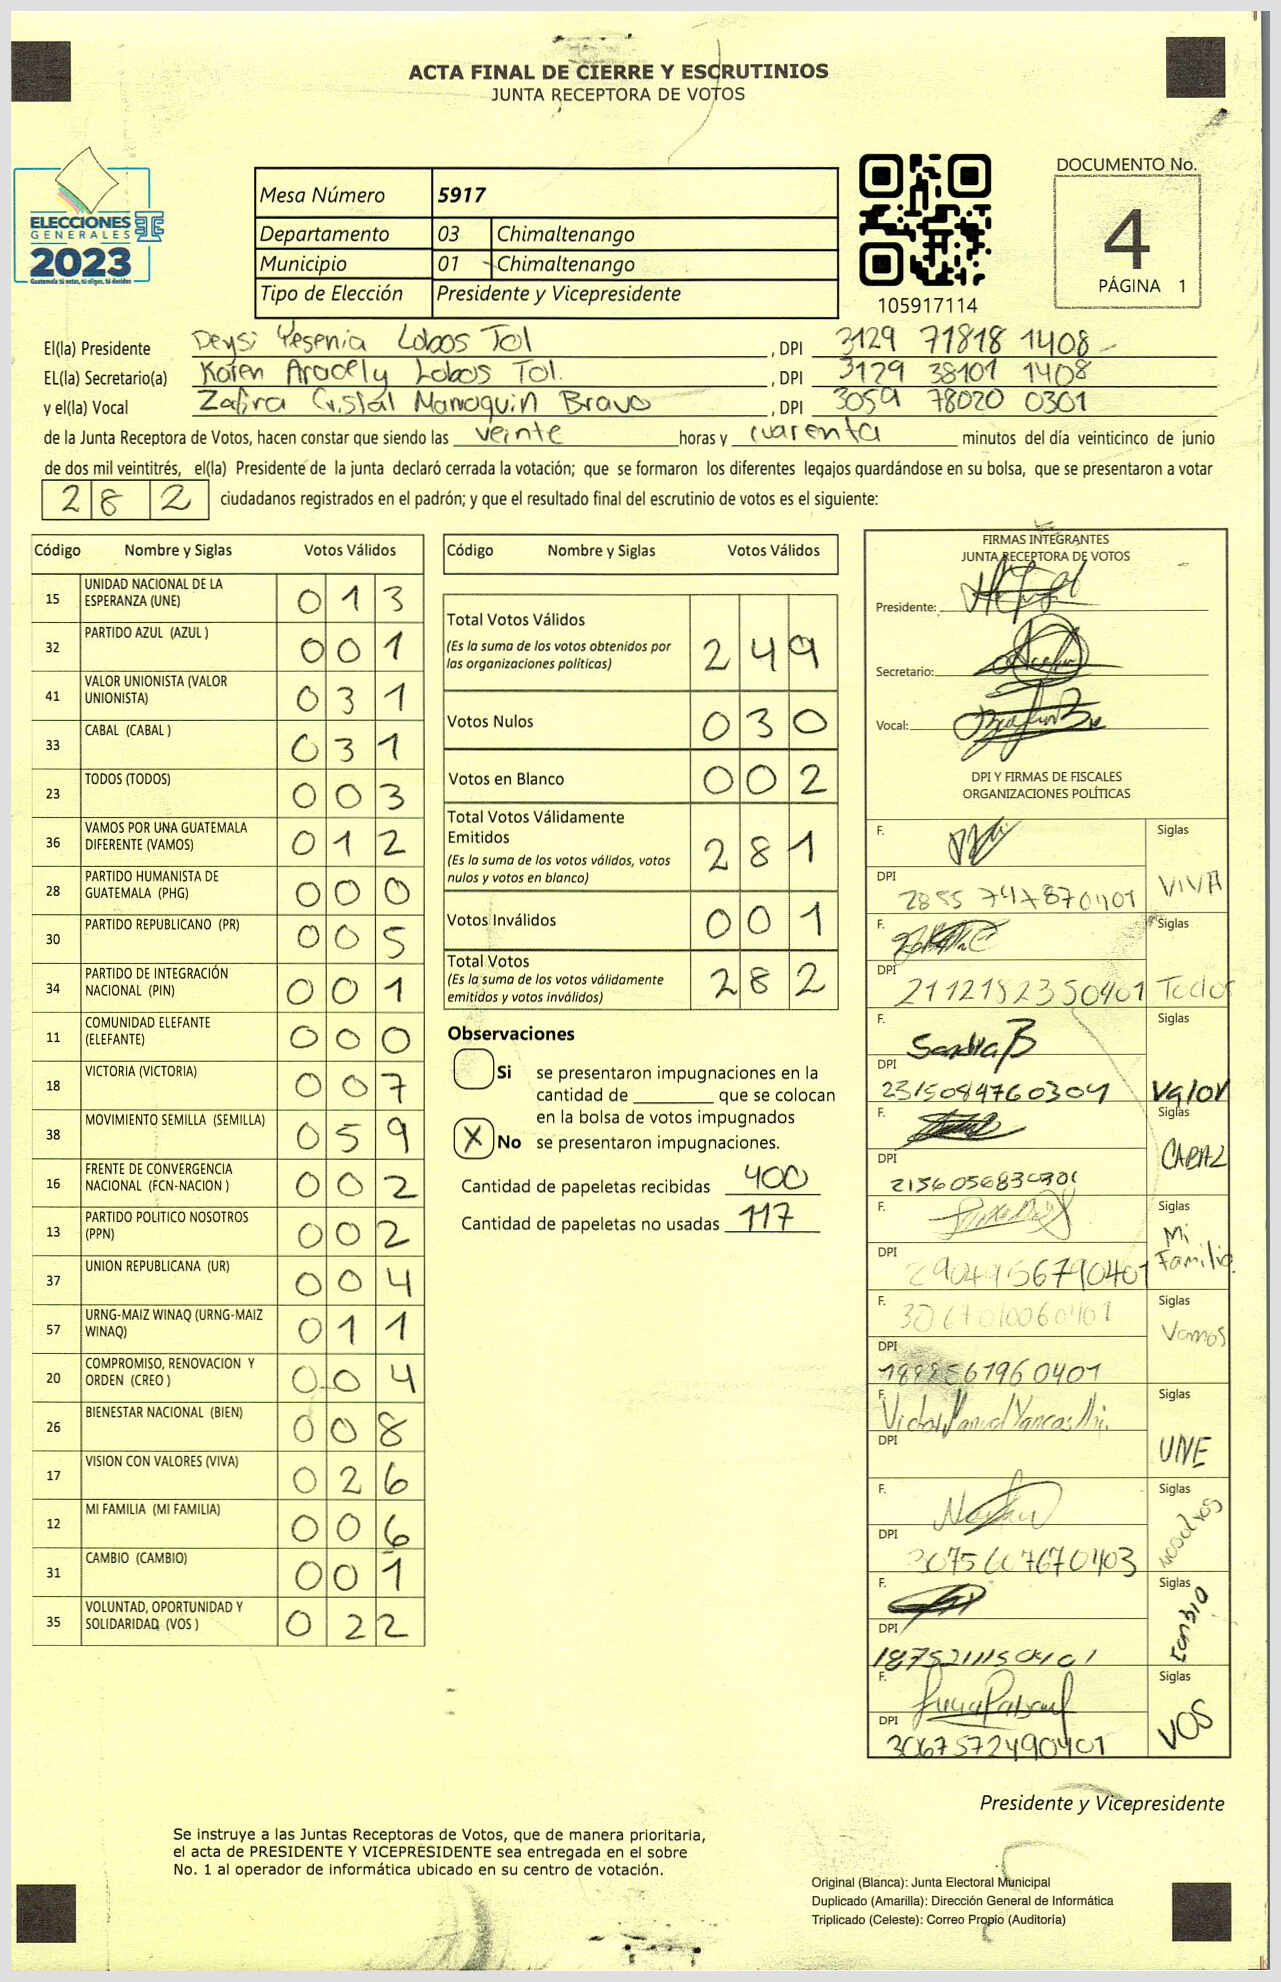 ACTA FINAL DE CIERRE Y ESCRUTINIOS
JUNTA RECEPTORA DE VOTOS
ELECCIONES
GENERALES
2023
Guatemala tú votas, tú eliges, tú decides
Mesa Número 5917
Departamento 03 Chimaltenango
Municipio 01 Chimaltenango
Tipo de Elección Presidente y Vicepresidente
105917114
DOCUMENTO No.
4
PÁGINA 1
El(la) Presidente Deysi Yesenia Lobos Tol, DPI 3129 71818 1408
EL(la) Secretario(a) Karen Aracely Lobos Tol. , DPI 3129 38101 1408
y el(la) Vocal Zafira Cristal Marroquin Bravo, DPI 3059 78020 0301
de la Junta Receptora de Votos, hacen constar que siendo las veinte horas y cuarenta minutos del día veinticinco de junio
de dos mil veintitrés, el(la) Presidente de la junta declaró cerrada la votación; que se formaron los diferentes legajos guardándose en su bolsa, que se presentaron a votar
282 ciudadanos registrados en el padrón; y que el resultado final del escrutinio de votos es el siguiente:
Código Nombre y Siglas Votos Válidos
15 UNIDAD NACIONAL DE LA ESPERANZA (UNE) 013
32 PARTIDO AZUL (AZUL ) 001
41 VALOR UNIONISTA (VALOR UNIONISTA) 031
33 CABAL (CABAL ) 031
23 TODOS (TODOS) 003
36 VAMOS POR UNA GUATEMALA DIFERENTE (VAMOS) 012
28 PARTIDO HUMANISTA DE GUATEMALA (PHG) 000
30 PARTIDO REPUBLICANO (PR) 005
34 PARTIDO DE INTEGRACIÓN NACIONAL (PIN) 001
11 COMUNIDAD ELEFANTE (ELEFANTE) 000
18 VICTORIA (VICTORIA) 007
38 MOVIMIENTO SEMILLA (SEMILLA) 059
16 FRENTE DE CONVERGENCIA NACIONAL (FCN-NACION ) 002
13 PARTIDO POLITICO NOSOTROS (PPN) 002
37 UNION REPUBLICANA (UR) 004
57 URNG-MAIZ WINAQ (URNG-MAIZ WINAQ) 011
20 COMPROMISO, RENOVACION Y ORDEN (CREO ) 004
26 BIENESTAR NACIONAL (BIEN) 008
17 VISION CON VALORES (VIVA) 026
12 MI FAMILIA (MI FAMILIA) 006
31 CAMBIO (CAMBIO) 001
35 VOLUNTAD, OPORTUNIDAD Y SOLIDARIDAD (VOS ) 022
Código Nombre y Siglas Votos Válidos
Total Votos Válidos 249
(Es la suma de los votos obtenidos por
las organizaciones políticas)
Votos Nulos 030
Votos en Blanco 002
Total Votos Válidamente
Emitidos 281
(Es la suma de los votos válidos, votos
nulos y votos en blanco)
Votos Inválidos 001
Total Votos 282
(Es la suma de los votos válidamente
emitidos y votos inválidos)
Observaciones
Si se presentaron impugnaciones en la
cantidad de ________ que se colocan
en la bolsa de votos impugnados
X No se presentaron impugnaciones.
Cantidad de papeletas recibidas 400
Cantidad de papeletas no usadas 117
FIRMAS INTEGRANTES
JUNTA RECEPTORA DE VOTOS
Presidente:
Secretario:
Vocal:
DPI Y FIRMAS DE FISCALES
ORGANIZACIONES POLÍTICAS
F. Siglas
DPI 2855 747870401 VIVA
F. Siglas
DPI 2112182350401 Todos
F. Sandra B Siglas
DPI 2315084760304 Valor
F. Siglas
DPI CABAL
F. Siglas
DPI 2904956790401 Mi Familia
F. Siglas
DPI Vamos
F. Siglas
DPI UNE
F. Siglas
DPI 3075607670403 Nosotros
F. Siglas
DPI Cambio
F. Siglas
DPI 3067572490401 VOS
Presidente y Vicepresidente
Se instruye a las Juntas Receptoras de Votos, que de manera prioritaria,
el acta de PRESIDENTE Y VICEPRESIDENTE sea entregada en el sobre
No. 1 al operador de informática ubicado en su centro de votación.
Original (Blanca): Junta Electoral Municipal
Duplicado (Amarilla): Dirección General de Informática
Triplicado (Celeste): Correo Propio (Auditoría)